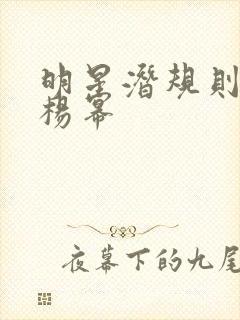 明星潜规则
杨幕
夜幕下的九尾